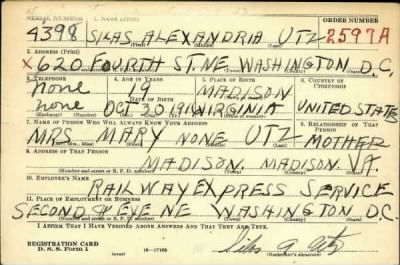 SERIAL NUMBER 1. NAME (Print) ORDER NUMBER
4398 SILAS ALEXANDRIA UTZ 2597A
(First) (Middle) (Last)
2. ADDRESS (Print)
X 620 FOURTH ST. NE WASHINGTON D.C.
3. TELEPHONE 4. AGE IN YEARS 5. PLACE OF BIRTH 6. COUNTRY OF CITIZENSHIP
none 19 MADISON
DATE OF BIRTH
none OCT 30 VIRGINIA UNITED STATES
(Exchange) (Number) (Mo.) (Day) (Yr.) (State or country)
7. NAME OF PERSON WHO WILL ALWAYS KNOW YOUR ADDRESS 8. RELATIONSHIP OF THAT PERSON
MRS. MARY NONE UTZ MOTHER
(Mr., Mrs., Miss) (First) (Middle) (Last)
9. ADDRESS OF THAT PERSON
MADISON, MADISON VA.
(Number and street or R. F. D. number) (Town) (County) (State)
10. EMPLOYER'S NAME
RAILWAY EXPRESS SERVICE
11. PLACE OF EMPLOYMENT OR BUSINESS
SECOND EYE NE WASHINGTON D.C.
(Number and street or R. F. D. number) (Town) (County) (State)
I AFFIRM THAT I HAVE VERIFIED ABOVE ANSWERS AND THAT THEY ARE TRUE.
REGISTRATION CARD
D. S. S. Form 1 16—17105 Silas A. Utz
(Registrant's signature)